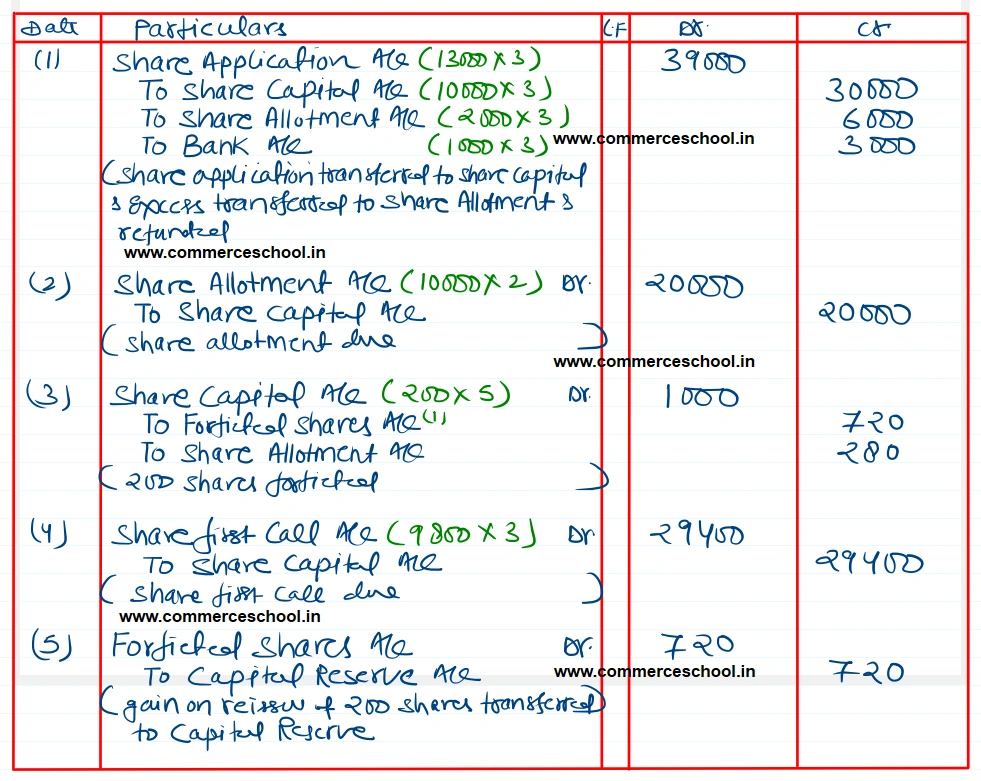 Date Particulars L.F Dr. Cr
(1) Share Application A/c (13000 X 3) 39000
To Share Capital A/c (10000 X 3) 30000
To Share Allotment A/c (2000 X 3) 6000
To Bank A/c (1000 X 3) www.commerceschool.in 3000
(share application transferred to share capital
& excess transferred to share Allotment &
refunded
www.commerceschool.in
(2) Share Allotment A/c (10000 X 2) Dr. 20000
To Share Capital A/c 20000
(share allotment due)
www.commerceschool.in
(3) Share Capital A/c (200 X 5) Dr. 1000
To Forfieted Shares A/c (1) 720
To Share Allotment A/c 280
(200 shares forfieted)
(4) Share first Call A/c (9800 X 3) Dr 29400
To Share Capital A/c 29400
(share first call due)
www.commerceschool.in
(5) Forfieted Shares A/c Dr. 720
To Capital Reserve A/c www.commerceschool.in 720
(gain on reissue of 200 shares transferred)
to Capital Reserve